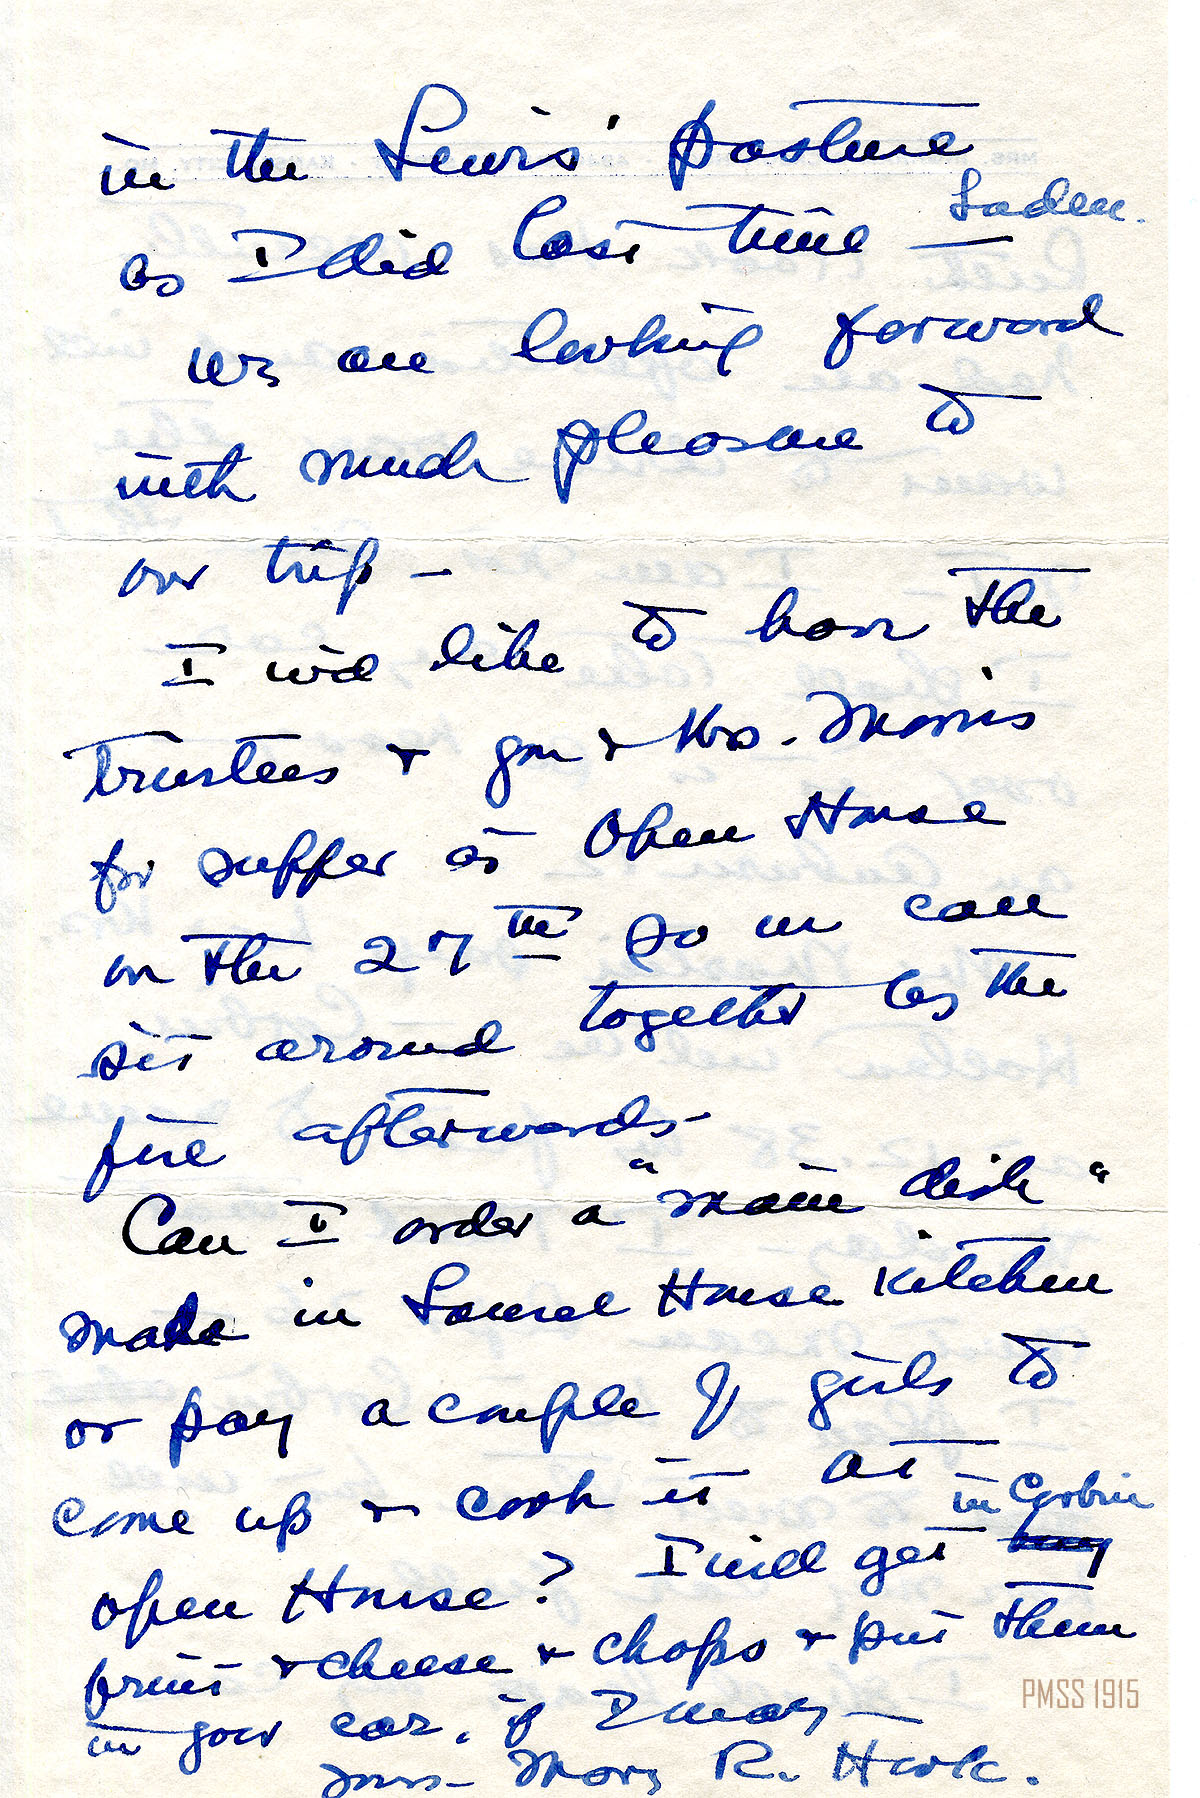 in the Lewis' pasture
as I did last time — Laden.
We are looking forward
with much pleasure to
our trip —
I wd like to have the
trustees & you & Mrs. Morris
for supper at Open House
on the 27th so we can
sit around together by the
fire afterwards—
Can I order a "main dish"
made in Laurel House Kitchen
or pay a couple of girls to
come up & cook it at
in Corbin
Open House? I will get
fruit & cheese & chops & put them
in your car, if I may —
Mary R. Hook.
PMSS 1915